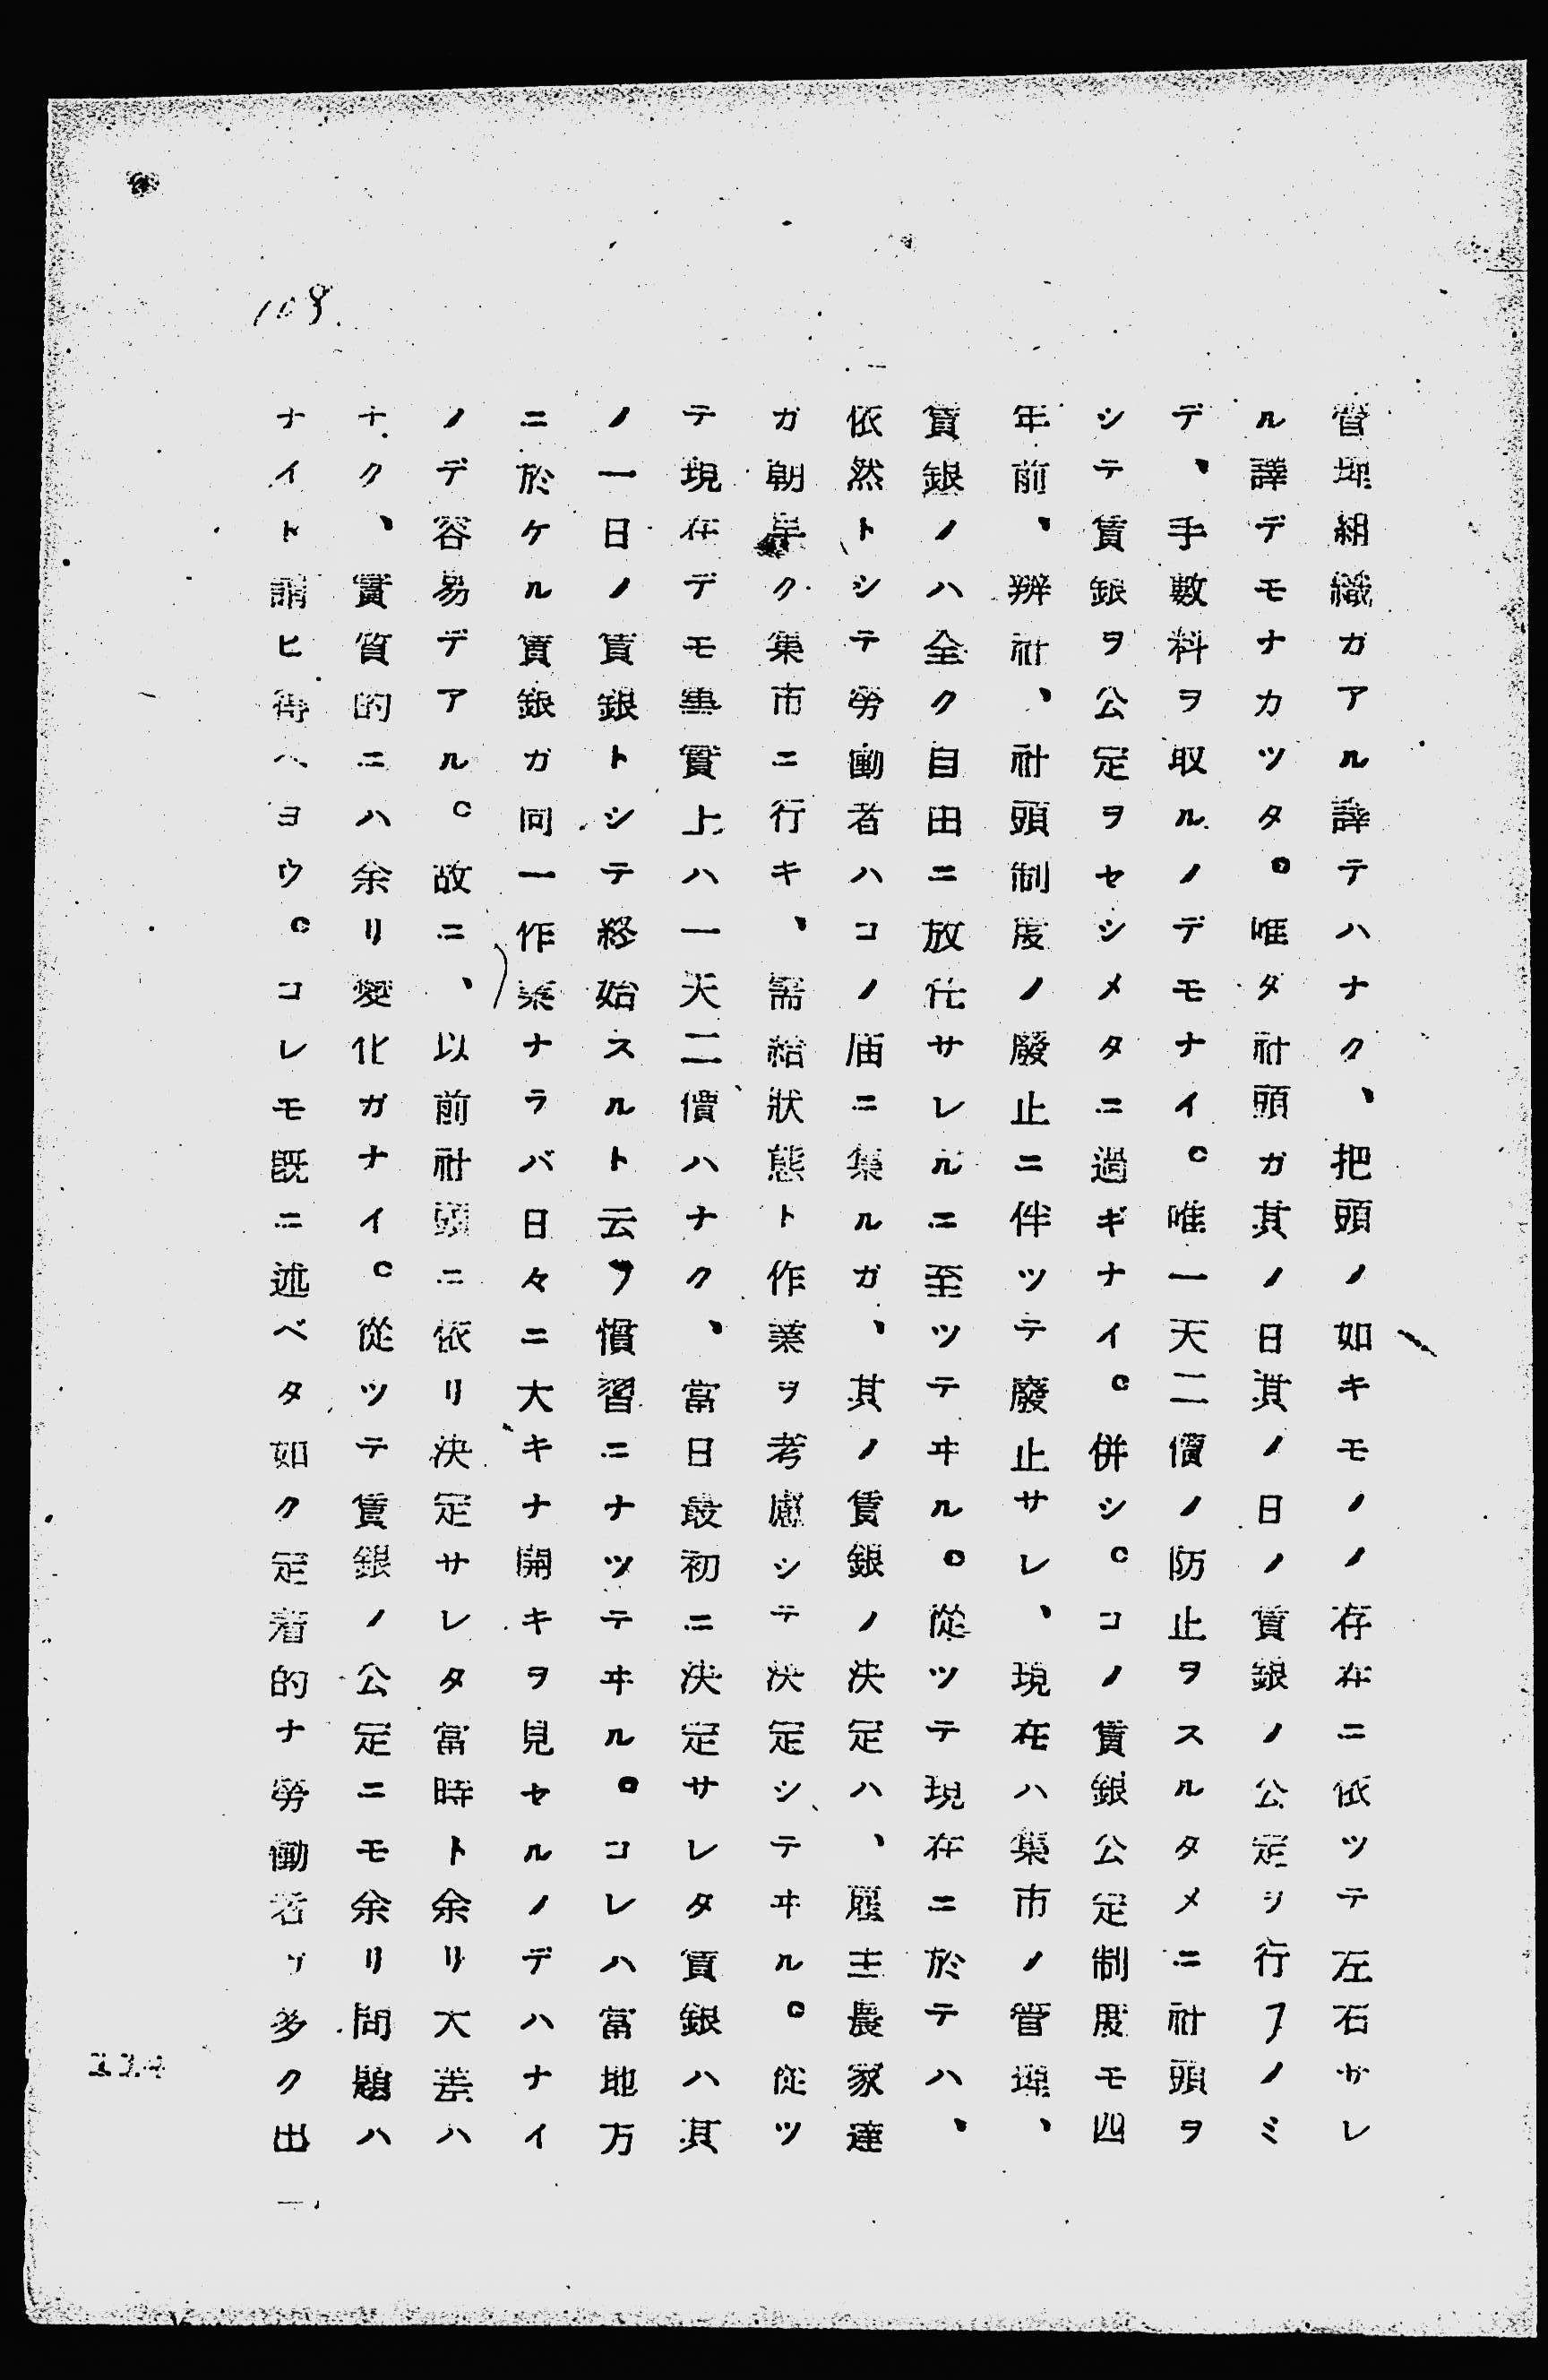 108.
管理組織ガアル譯テハナク、把頭ノ如キモノノ存在ニ依ツテ左石サレ
ル譯デモナカツタ。唯ダ社頭ガ其ノ日其ノ日ノ賃銀ノ公定ヲ行フノミ
デ、手數料ヲ取ルノデモナイ。唯一天二價ノ防止ヲスルタメニ社頭ヲ
シテ賃銀ヲ公定ヲセシメタニ過ギナイ。併シ。コノ賃銀公定制度モ四
年前、辦社、社頭制度ノ廢止ニ伴ツテ廢止サレ、現在ハ集市ノ管理、
賃銀ノハ全ク自由ニ放任サレルニ至ツテヰル。從ツテ現在ニ於テハ、
依然トシテ勞働者ハコノ庙ニ集ルガ、其ノ賃銀ノ決定ハ、雇主農家達
ガ朝早ク集市ニ行キ、需給狀態ト作業ヲ考慮シテ決定シテヰル。從ツ
テ現在デモ事實上ハ一天二價ハナク、當日最初ニ決定サレタ賃銀ハ其
ノ一日ノ賃銀トシテ終始スルト云フ慣習ニナツテヰル。コレハ當地方
ニ於ケル賃銀ガ同一作業ナラバ日々ニ大キナ開キヲ見セルノデハナイ
ノデ容易デアル。故ニ、以前社頭ニ依リ決定サレタ當時ト余リ大差ハ
ナク、實質的ニハ余リ變化ガナイ。從ツテ賃銀ノ公定ニモ余リ問題ハ
ナイト謂ヒ得ヘヨウ。コレモ既ニ述ベタ如ク定着的ナ勞働者ガ多ク出
224